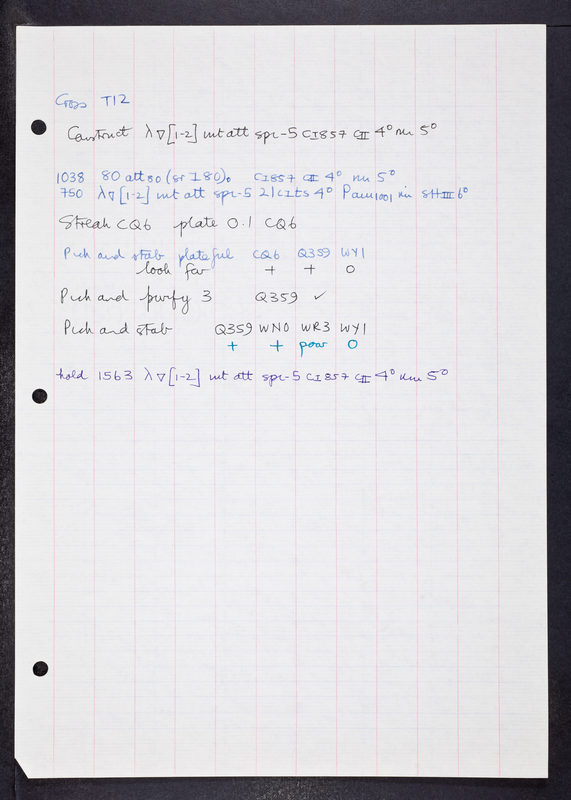 Cross T12
Construct λ∇[1-2] int att spi-5 CI857 CII 4° nin 5°
1038 80 att80 (sr I 80)° CI857 CII 4° nin 5°
750 λ∇[1-2] int att spi-5 21 CI ts 4° Pam1001 nin SHIII 6°
Streak CQ6 plate 0.1 CQ6
Pick and stab plateful CQ6 Q359 WY1
look for + + 0
Pick and purify 3 Q359 ✓
Pick and stab Q359 WNO WR3 WY1
+ + poor 0
hold 1563 λ∇[1-2] int att spi-5 CI857 CII 4° nin 5°